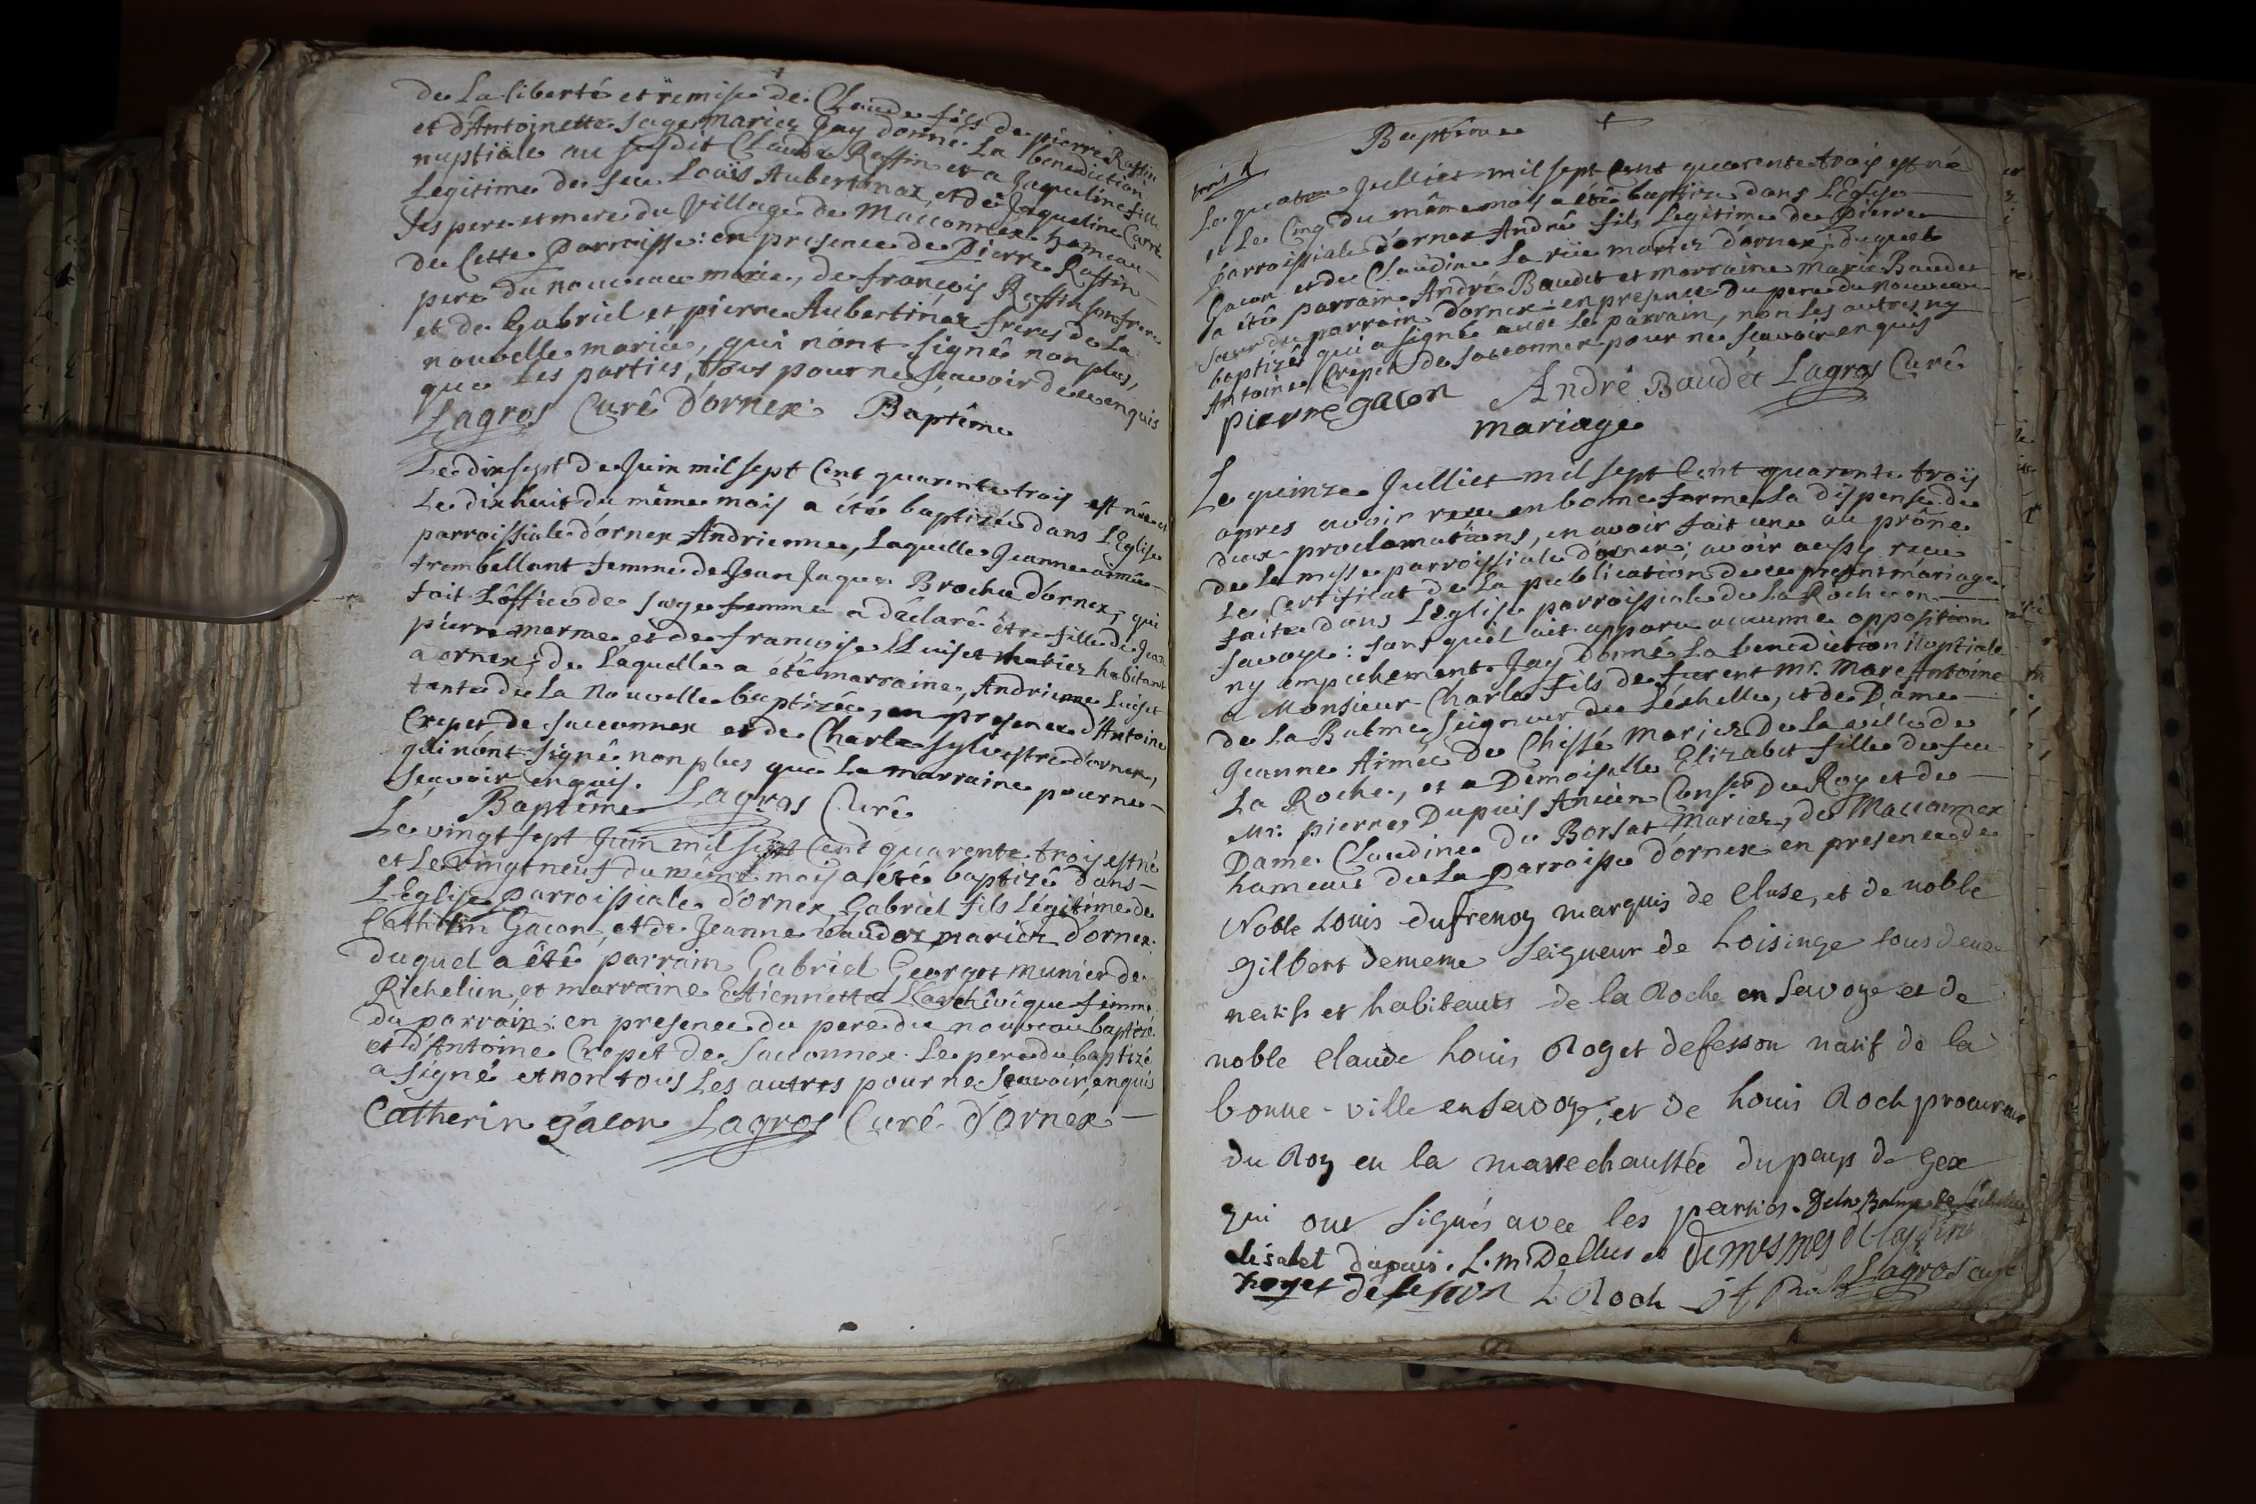 de La liberté et remise de Claude fils de pierre Raffin
et d'Antoinette Sage mariez Jay donné La benediction
nuptiale au susdit Claude Raffin et a Jaqueline fille
Legitime de feu Loüis Aubertinaz et de Jaqueline Carré
ses pere et mere du Village de Macconnex hameau
de Cette Parroisse: en presence de Pierre Raffin
pere du nouveau marié, de françois Raffin son frere
et de Gabriel et pierre Aubertinaz freres de La
nouvelle mariée, qui n'ont signé non plus,
que Les parties, tous pour ne sçavoir de ce enquis
Lagros Curé D'ornex. Baptême
Le dix sept de Juin mil sept Cent quarente trois est née et
Le dix huit du même mois a été baptizée dans L'Eglise
parroissiale d'ornex Andrienne, Laquelle Jeanne aimée
trembellant femme de Jean Jaque Brochu d'ornex, qui
fait L'office de sage femme a déclaré être fille de Jean
pierre marme et de françoise Luiset mariez habitant
a ornex; de Laquelle a été marraine, Andrienne Luiset
tante de La nouvelle baptizée, en presence d'Antoine
Crepet de sacconnex et de Charle sylvestre d'ornex,
qui n'ont signé non plus que La marraine pour ne
sçavoir enquis. Lagros Curé
Baptême
Le vingt sept Juin mil sept Cent quarente trois est né
et Le vingt neuf du même mois a été baptizé dans
L'Eglise Parroissiale d'ornex Gabriel fils Légitime de
Cathérin Gacon, et de Jeanne vaudoz mariez d'ornex.
duquel a été parrain Gabriel Georget munier de
Richelieu, et marraine Etiennette L'archévêque femme
du parrain: en presence du pere du nouveau baptizé
et d'Antoine Crepet de Sacconnex. Le pere du baptizé
a signé et non tous Les autres pour ne sçavoir enquis
Catherin gacon Lagros Curé d'Ornéx
Baptême
Le quatre Julliet mil sept Cent quarente trois est né
et Le Cinq du même mois a été baptizé dans L'Eglise
parroissiale d'ornex André fils Legitime de Pierre
Gacon et de Claudine La rüe mariez d'ornex; duquel
a été parrain André Baudet et marraine marie Baudet
sœur du parrain d'ornex: en presence du pere du nouveau
baptizé qui a signé avec Le parrain, non Les autres ny
Antoine Crepet de Sacconnex pour ne sçavoir enquis
pierre gacon André Baudet Lagros Curé
mariage
Le quinze Julliet mil sept Cent quarente troïs
apres avoir reçu en bonne forme La dispense de
deux proclamations, en avoir fait une au prône
de La messe parroissiale d'ornex; avoir aussy reçu
Le Certificat de La publication de ce present mariage
faite dans L'eglise parroissiale de La Roche en
Savoye: sans qu'il ait apparu aucune opposition
ny empechement. Jay Donné La benediction Nuptiale
a Monsieur Charle fils de furent Mr. Marc Antoine
de La Balme Seigneur de L'échelle, et de Dame
Jeanne Aimée De Chissé Mariez De La ville de
La Roche, et a Demoiselle Elizabet fille de feu
Mr. pierre Dupuis Ancien Conser. Du Roy et de
Dame Claudine du Borsat Mariez, de Macconnex
hameau de La Parroisse d'ornex en presence de
Noble Louis dufrenoy marquis de Cluse, et de noble
gilbert demene Seigneur de Loisinge tous deux
natifs et habitants de la Roche en Savoye et de
noble Claude Louis Roget defesson natif de la
bonne-ville en Savoye, et de Louis Roch procureur
du Roy en la marechaussée du pays de Gex
qui ont Signés avec les parties. Dela Balme de
Elisabet dupuis. L. m. De Clus et
roget defesson L. Roch Lagros curé